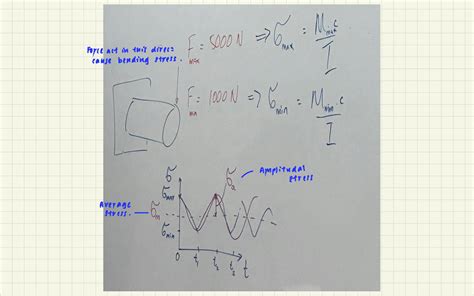 Force act in this direct
cause bending stress.
F max = 5000N => σ max = M max c / I
F min = 1000N => σ min = M min . c / I
σ
Amplitudal
stress
σ max
σ a
Average
stress.
σ m
σ min
0 t₁ t₂ t₃ t